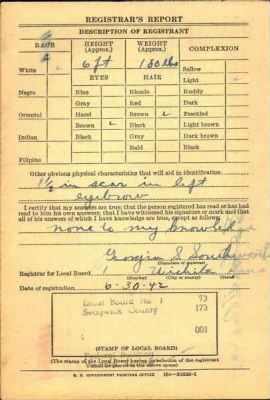 REGISTRAR'S REPORT
DESCRIPTION OF REGISTRANT
RACE HEIGHT (Approx.) WEIGHT (Approx.) COMPLEXION
6 ft 180 lbs Sallow
White EYES HAIR Light
Negro Blue Blonde Ruddy
Gray Red Dark
Oriental Hazel Brown Freckled
Brown Black Light brown
Indian Black Gray Dark brown
Bald Black
Filipino
Other obvious physical characteristics that will aid in identification
1½ in scar in left
eyebrow
I certify that my answers are true; that the person registered has read or has had
read to him his own answers; that I have witnessed his signature or mark and that
all of his answers of which I have knowledge are true, except as follows:
none to my knowledge
Georgia S.
(Signature of registrar)
Registrar for Local Board 1 Wichita
(Number) (City or county) (State)
Date of registration 6-30-42
Local Board No 1 73
Sedgwick County 173
001
(STAMP OF LOCAL BOARD)
Federal Building
(The stamp of the Local Board having jurisdiction of the registrant
shall be placed in the above space)
U. S. GOVERNMENT PRINTING OFFICE